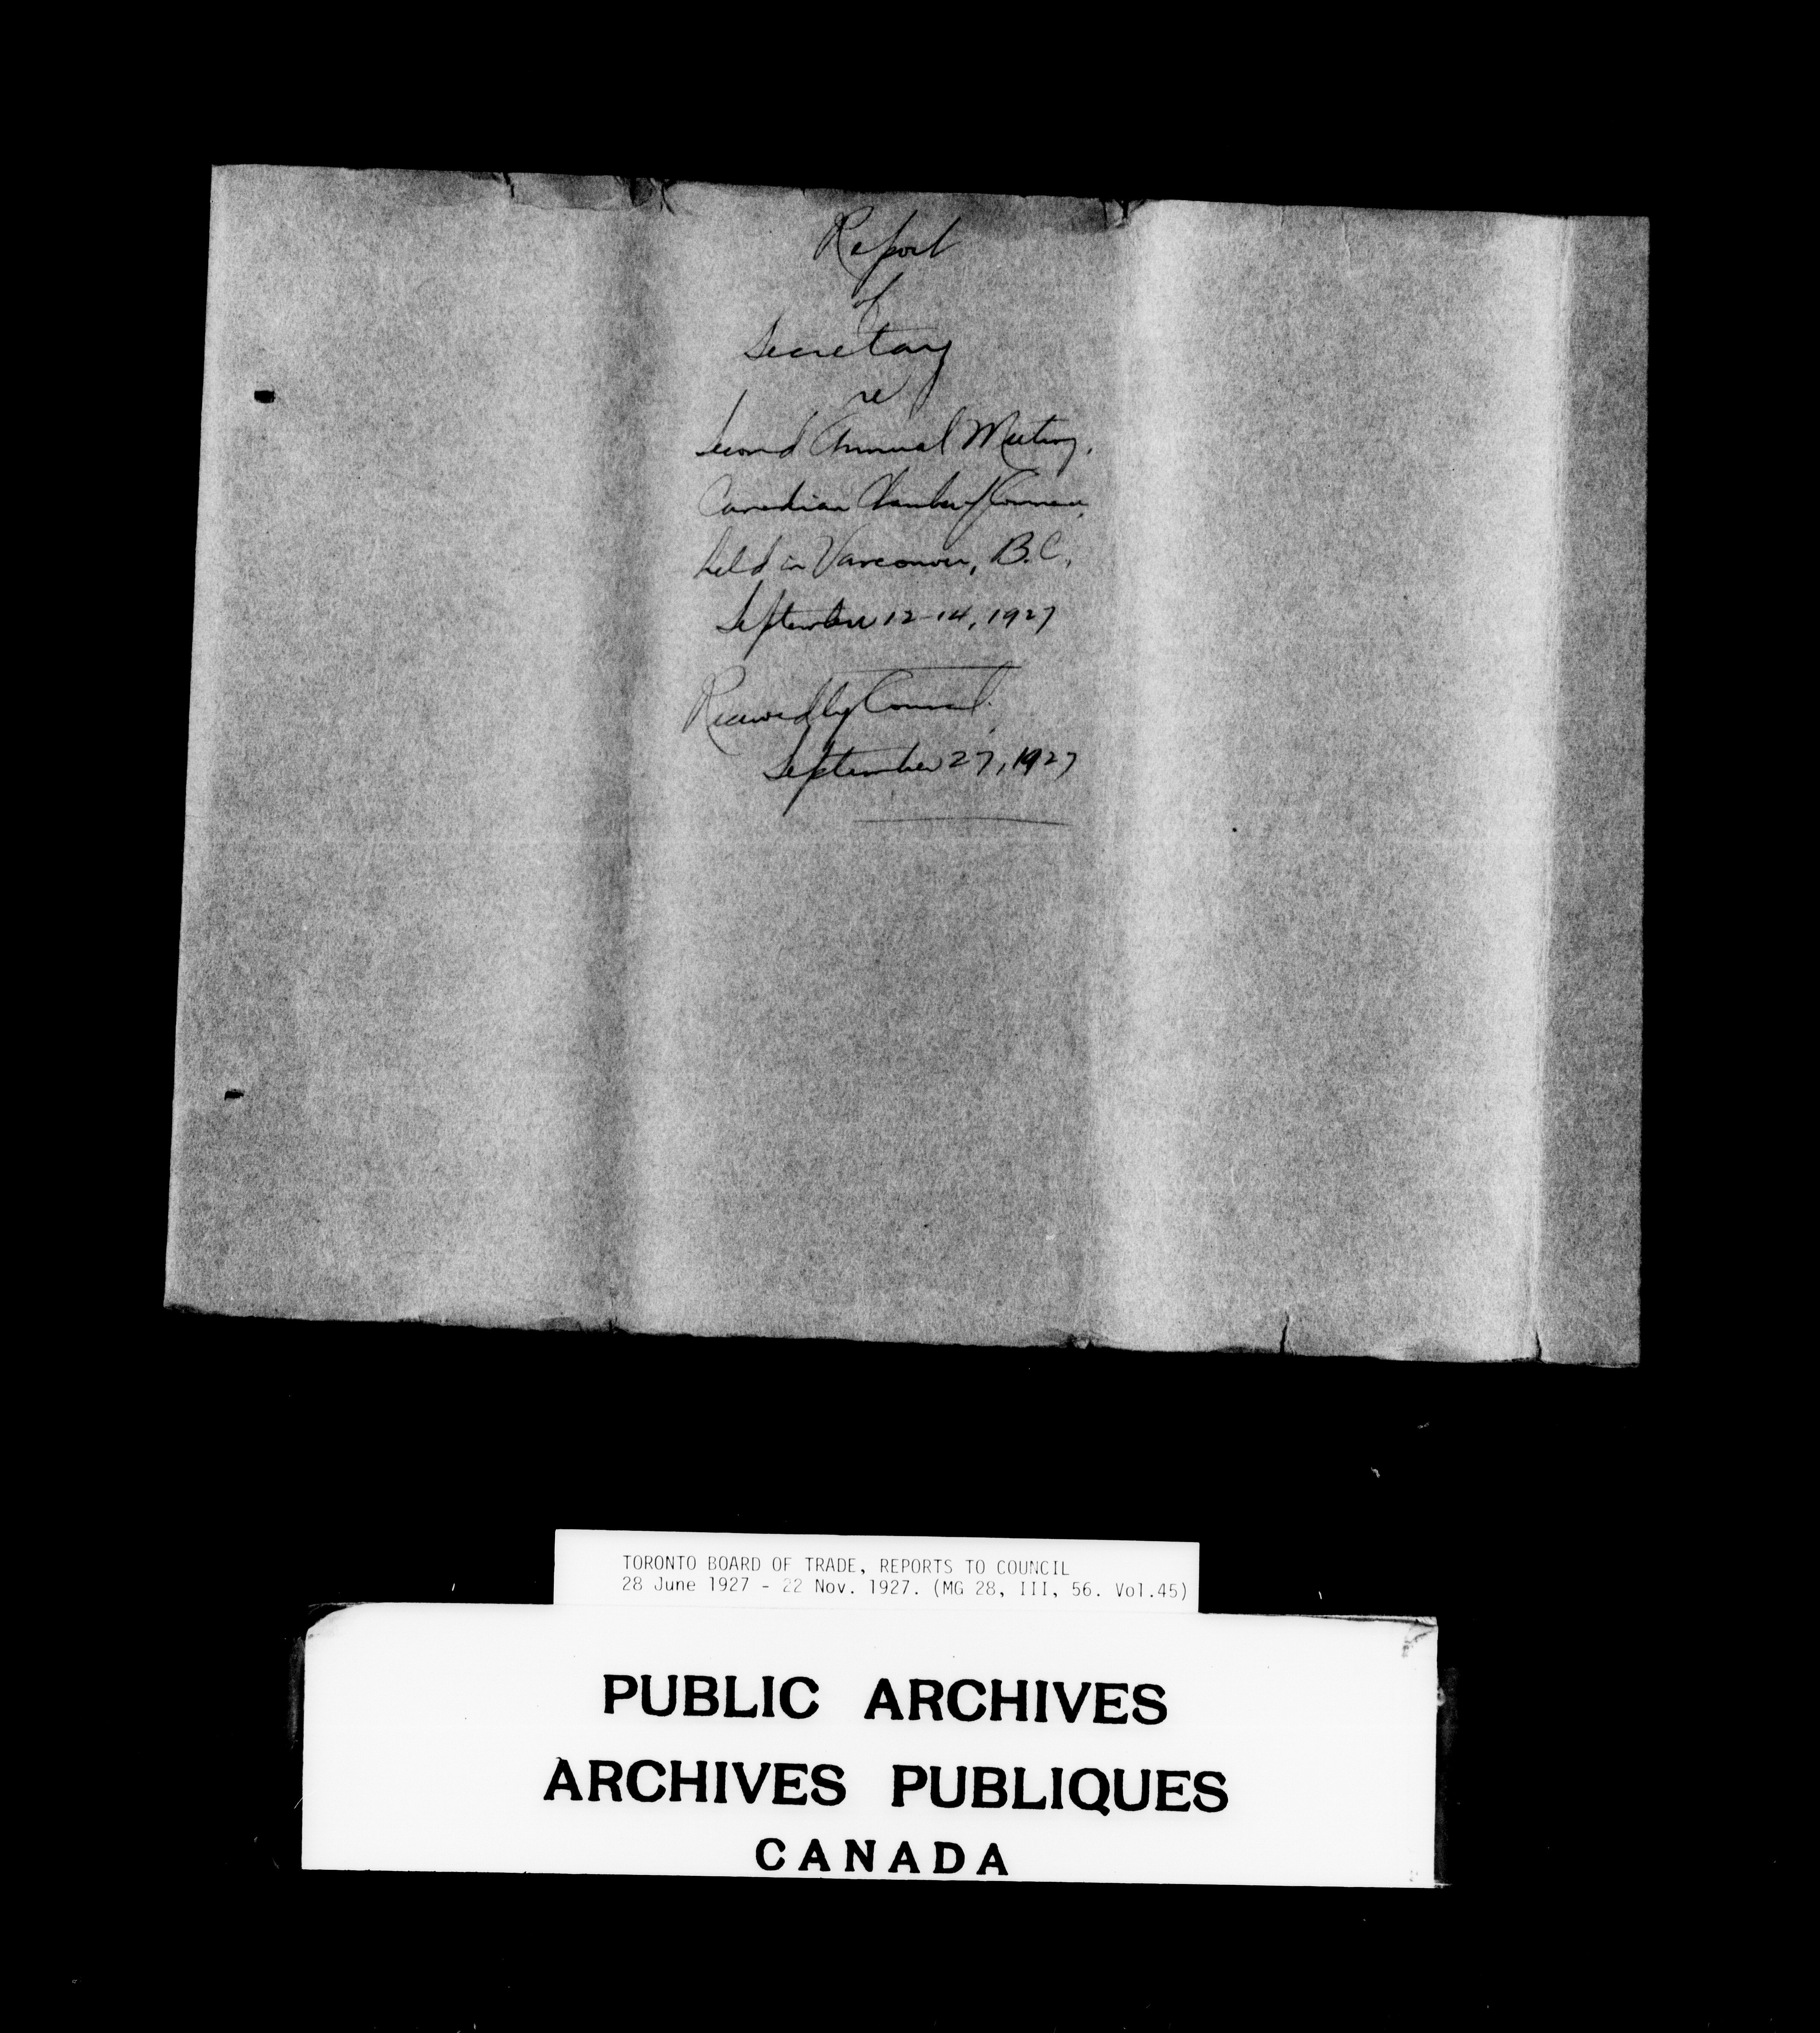 Report
of
Secretary
re
Second Annual Meeting,
Canadian Chamber of Commerce,
held in Vancouver, B.C.,
September 12-14, 1927
Received by Council.
September 27, 1927
TORONTO BOARD OF TRADE, REPORTS TO COUNCIL
28 June 1927 - 22 Nov. 1927. (MG 28, III, 56. Vol.45)
PUBLIC ARCHIVES
ARCHIVES PUBLIQUES
CANADA